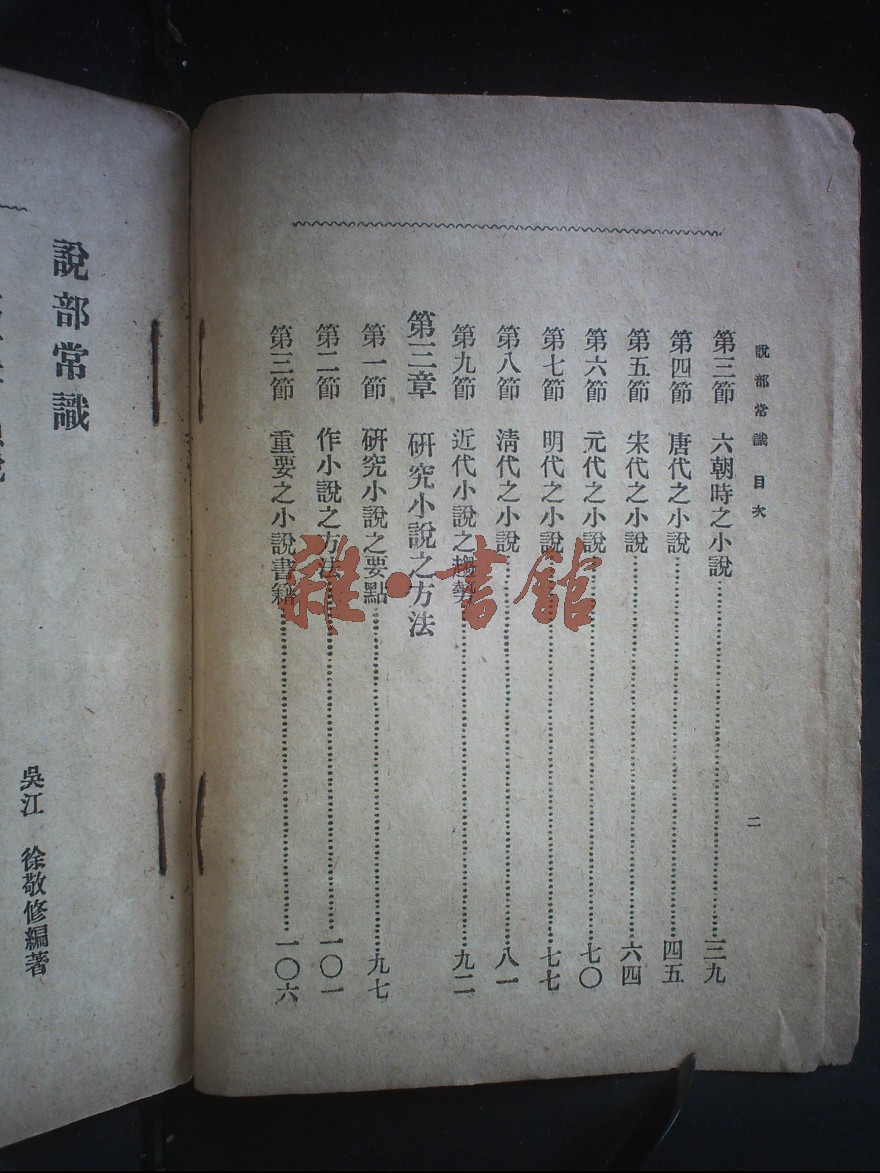 說部常識 目次
二
第三節 六朝時之小說……三九
第四節 唐代之小說……四五
第五節 宋代之小說……六四
第六節 元代之小說……七〇
第七節 明代之小說……七七
第八節 清代之小說……八一
第九節 近代小說之趨勢……九二
第三章 研究小說之方法
第一節 研究小說之要點……九七
第二節 作小說之方法……一〇一
第三節 重要之小說書籍……一〇六
雜·書館
說部常識
吳江 徐敬修編著